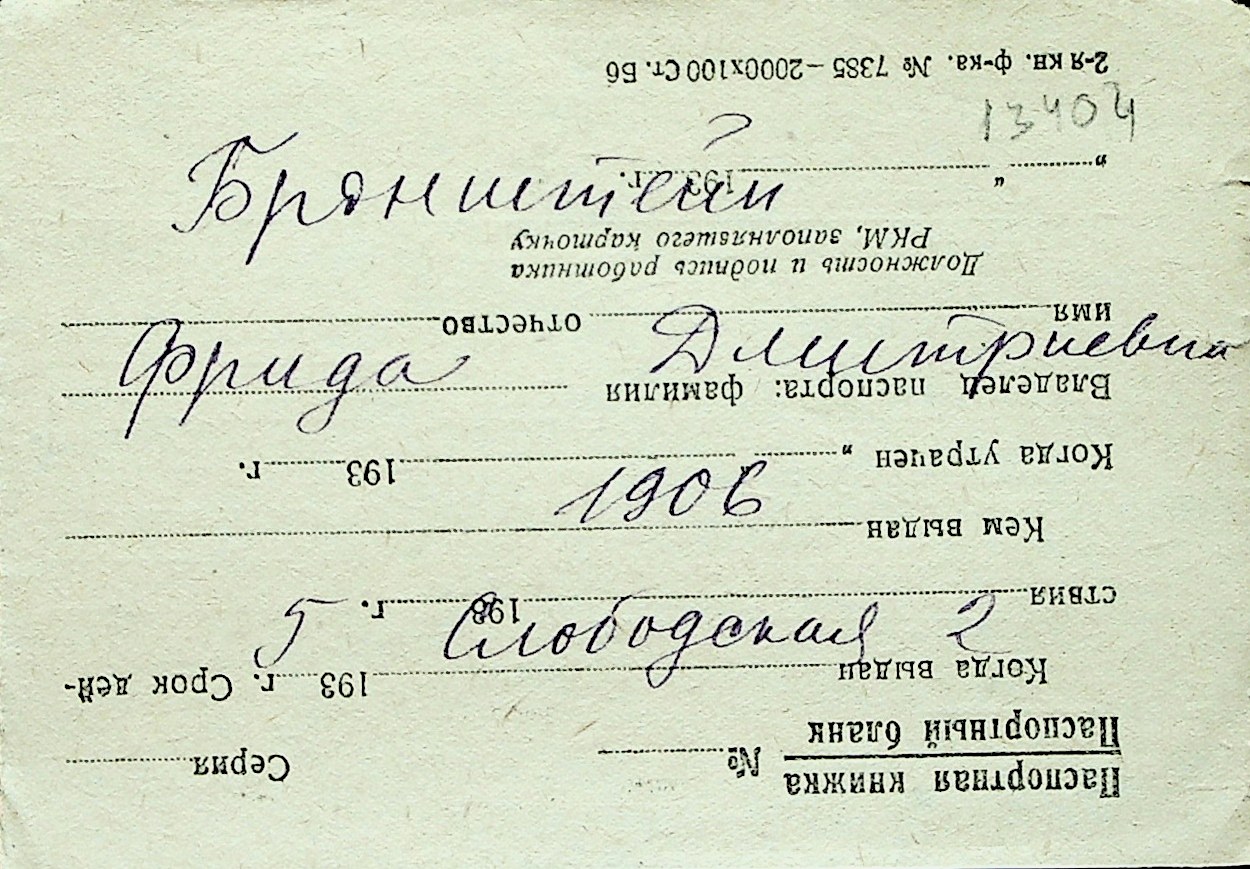 13404
Бронштейн
Фрида Дмитриевна
1906
5 Слободская 2
Паспортная книжка № Серия
Паспортный бланк
Когда выдан 193 г. Срок дей-
ствия 193 г.
Кем выдан
Когда утрачен „ 193 г.
Владелец паспорта: фамилия
имя отчество
Должность и подпись работника
РКМ, заполнявшего карточку
„ “ 193 г.
2-я кн. ф-ка. № 7385—2000х100 Ст. Б6